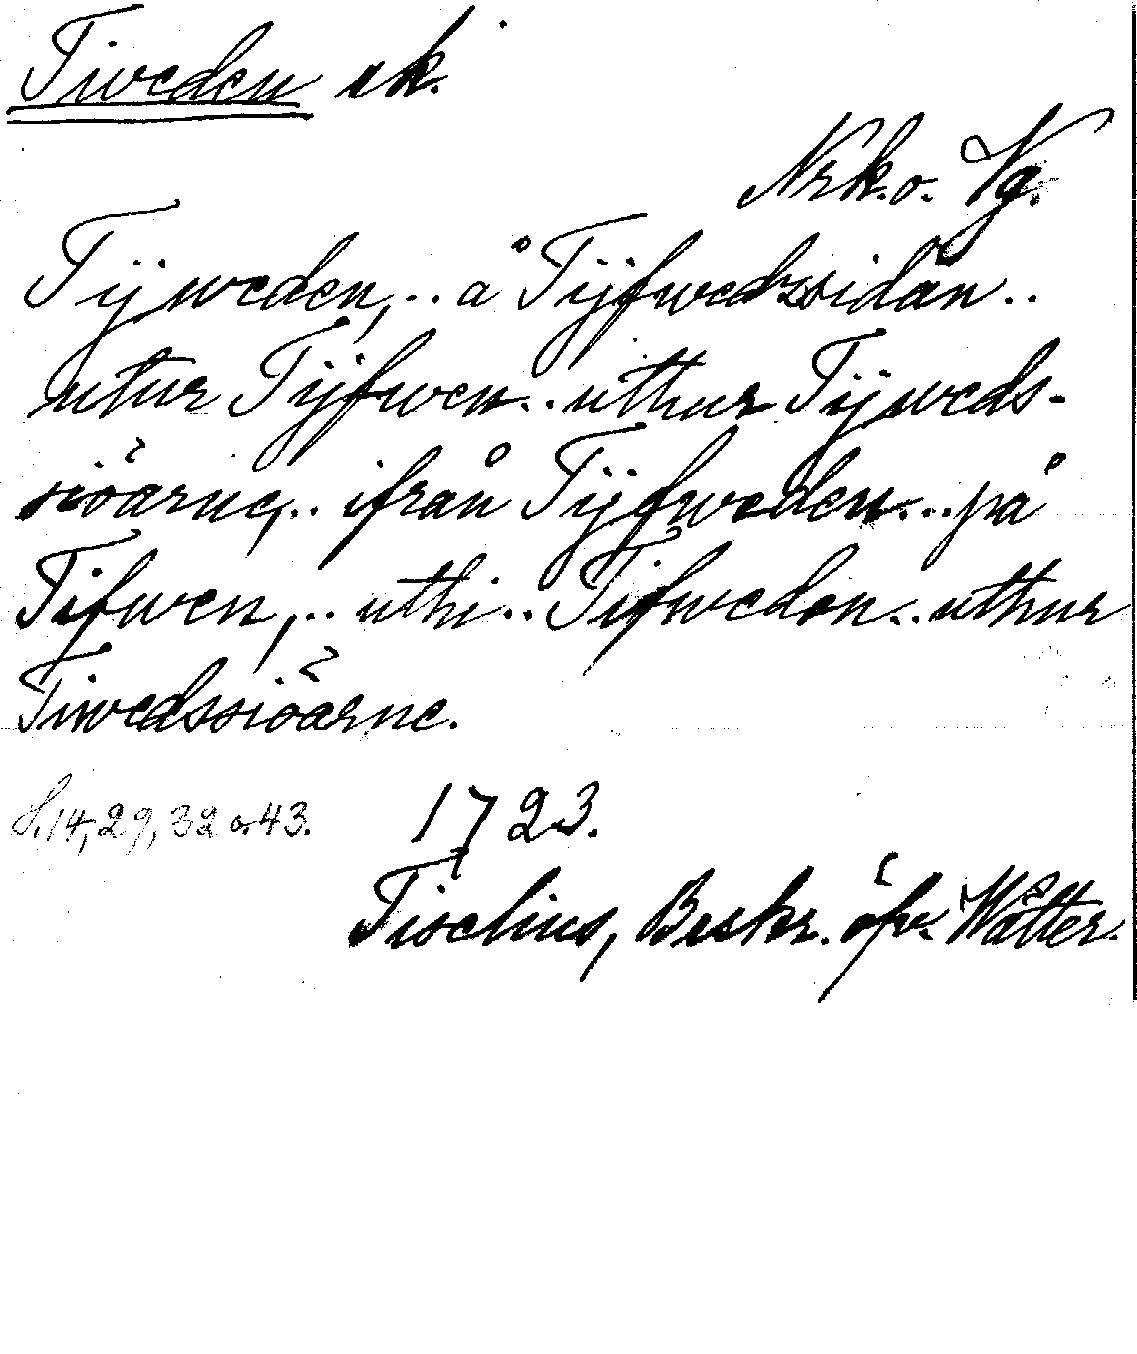 Tiweden sk.
Nrk. o. Vg.
Tijweden, .. å Tijfwedzsidan ..
utur Tijfwen .. uthur Tijweds-
siöarne, .. ifrån Tijfweden ... på
Tifwen, .. uthi .. Tifweden .. uthur
Tiwedssiöarne.
S. 14, 29, 32 o. 43. 1723.
Tiselius, Beskr. öfv. Wätter.